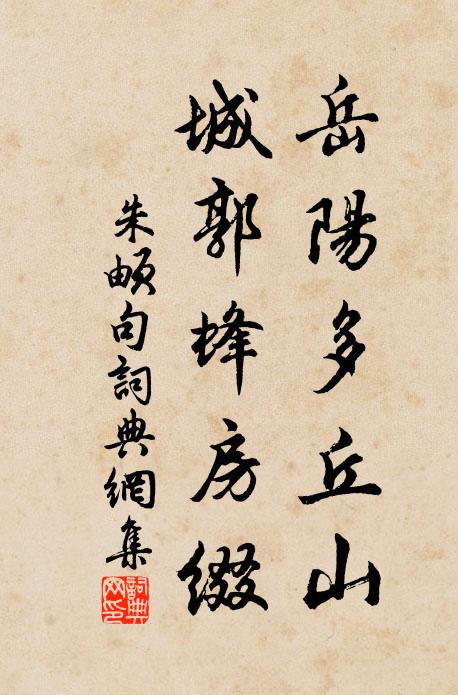 岳陽多丘山
城郭蜂房綴
朱頔句詞典網集
詞典
网印